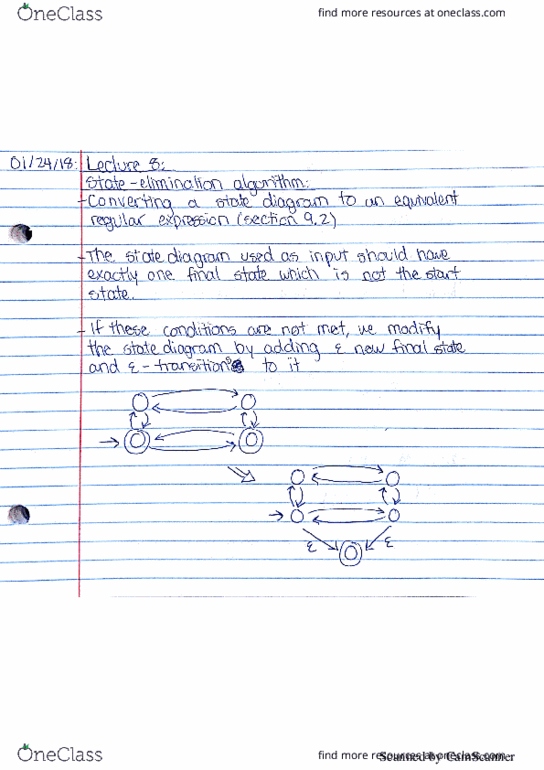 OneClass
find more resources at oneclass.com
01/24/18: Lecture 8:
State-elimination algorithm:
- Converting a state diagram to an equivalent
regular expression (section 9.2)
- The state diagram used as input should have
exactly one final state which is not the start
state.
- If these conditions are not met, we modify
the state diagram by adding ε new final state
and ε-transitions to it
ε
ε
OneClass
find more resources at oneclass.com
Scanned by CamScanner